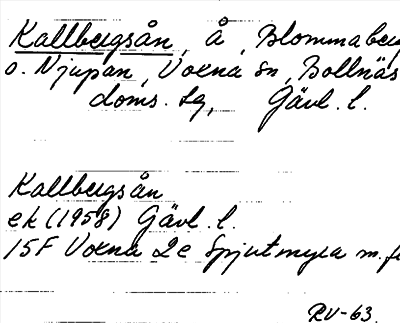 Kallbergsån, å, Blommaberg
o. Njupan, Voxna sn, Bollnäs
doms. sg, Gävl. l.
Kallbergsån
ek (1958) Gävl. l.
15F Voxna 2e Spjutmyra m. fl
RV-63.